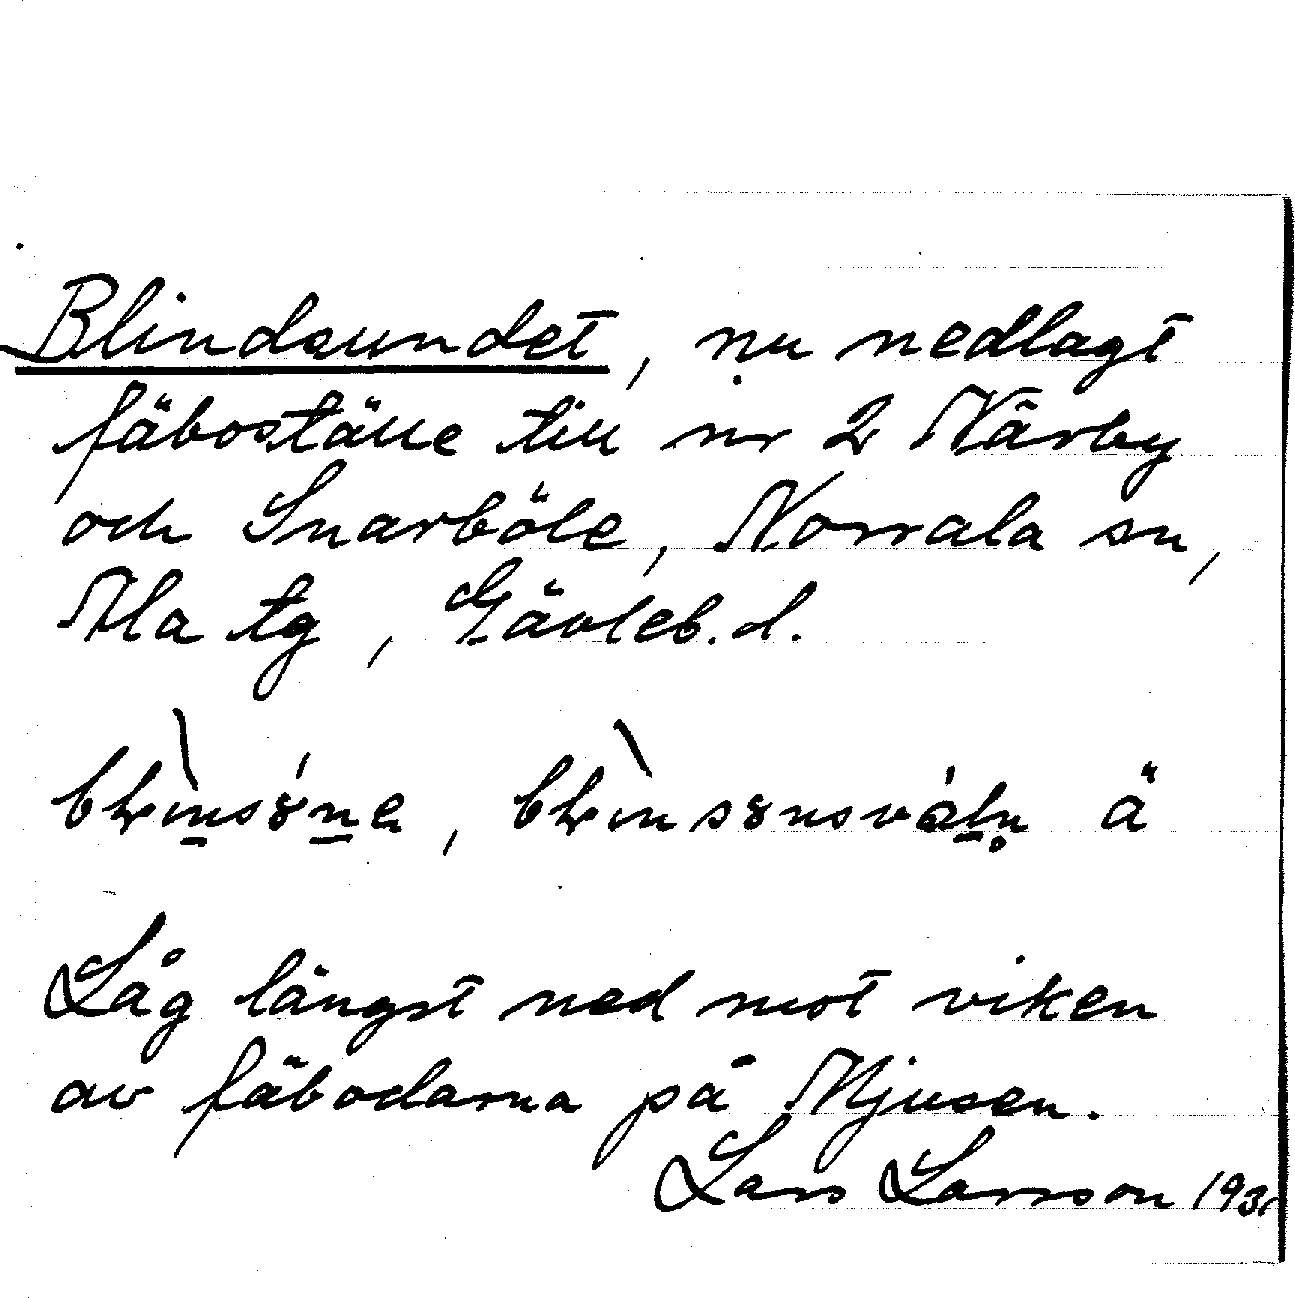 Blindsundet, nu nedlagt
fäboställe till nr 2 Närby
och Snarböle, Norrala sn,
Ala tg, Gävleb. l.
å
Låg längst ned mot viken
av fäbodarna på Mjusen.
Lars Larsson